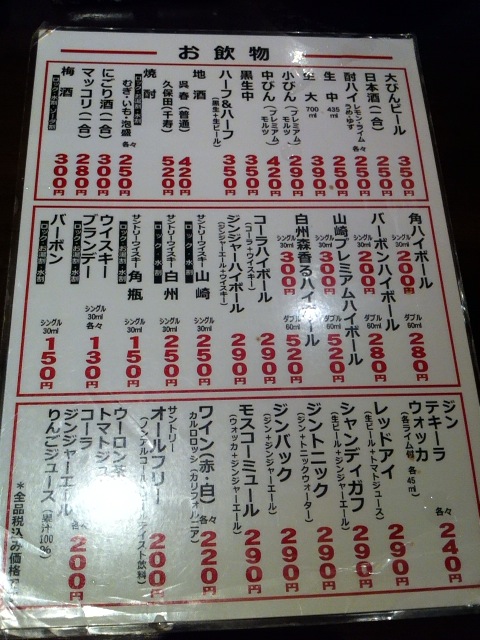 お飲物
大びんビール 350円
日本酒(一合) 250円
酎ハイ レモン・ライム うめ・ゆず 各々 250円
生 中 435ml 250円
生 大 700ml 390円
小びん(プレミアム モルツ) 290円
中びん(プレミアム モルツ) 420円
黒生中 350円
ハーフ&ハーフ(黒生+生ビール) 350円
地酒
呉春(普通) 420円
久保田(千寿) 520円
焼酎
むぎ・いも・泡盛 各々 250円
ロック・お湯割・水割
にごり酒(一合) 300円
マッコリ(一合) 280円
梅酒 300円
ロック・水割・ソーダ割
角ハイボール シングル 30ml 200円 ダブル 60ml 280円
バーボンハイボール シングル 30ml 200円 ダブル 60ml 280円
山崎プレミアムハイボール シングル 30ml 300円 ダブル 60ml 520円
白州森香るハイボール シングル 30ml 300円 ダブル 60ml 520円
コーラハイボール(コーラ・ウイスキー) 290円
ジンジャーハイボール(ジンジャーエール・ウイスキー) 290円
サントリーウイスキー 山崎 シングル 30ml 250円
ロック・お湯割・水割
サントリーウイスキー 白州 シングル 30ml 250円
ロック・水割
サントリーウイスキー 角瓶 シングル 30ml 150円
ロック・お湯割・水割
ウイスキー
ブランデー シングル 30ml 各々 130円
バーボン シングル 30ml 150円
ロック・お湯割・水割
ジン
テキーラ
ウォッカ(各ライム付) 各45ml 各々 240円
レッドアイ(生ビール+トマトジュース) 290円
シャンディガフ(生ビール+ジンジャーエール) 290円
ジントニック(ジン+トニックウォーター) 290円
ジンバック(ジン+ジンジャーエール) 290円
モスコーミュール(ウォッカ+ジンジャーエール) 290円
ワイン(赤・白) 各々 220円
カルロロッシ(カリフォルニア)
サントリー
オールフリー 200円
(ノンアルコールビールテイスト飲料)
ウーロン茶
トマトジュース
コーラ
ジンジャーエール
りんごジュース(果汁100%) 各々 200円
*全品税込み価格